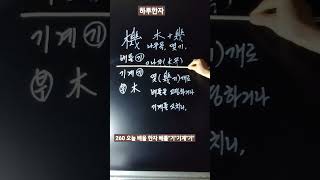 하루한자
機 木+幾
나무목, 몇기.
베틀 기
기계 기
부 木
몇(幾)개로
베틀을
기계를 고치니,
260 오늘 배울 한자 베틀'기'기계'기'